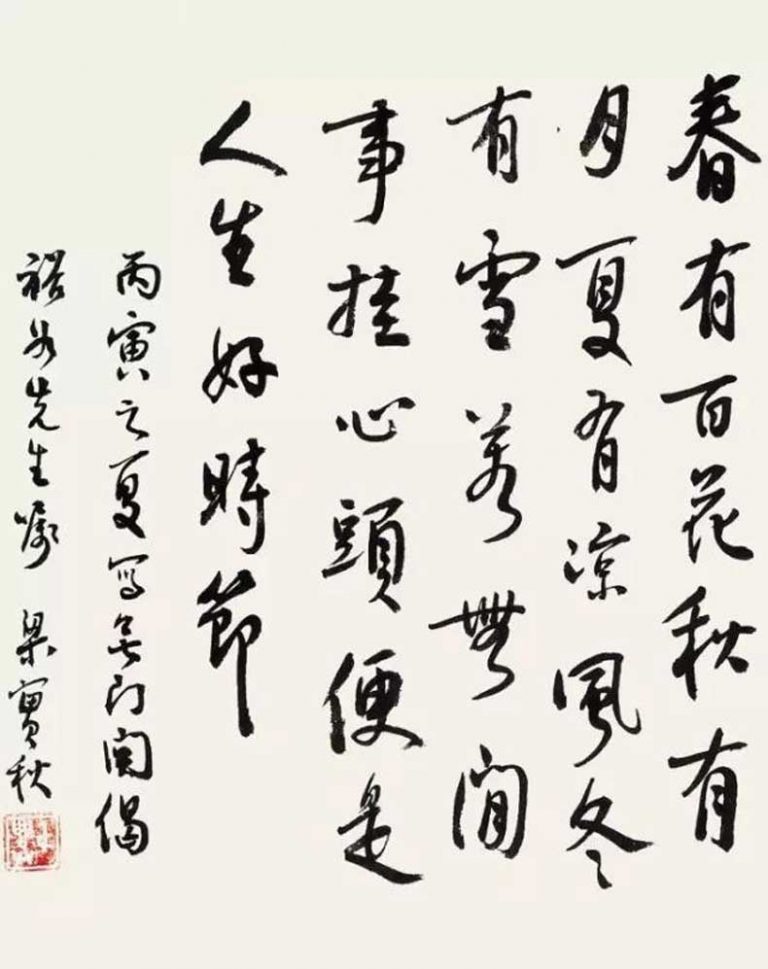 春有百花秋有
月夏有凉風冬
有雪若無閒
事挂心頭便是
人生好時節
丙寅之夏寫無门関偈
裕如先生嘱 梁實秋